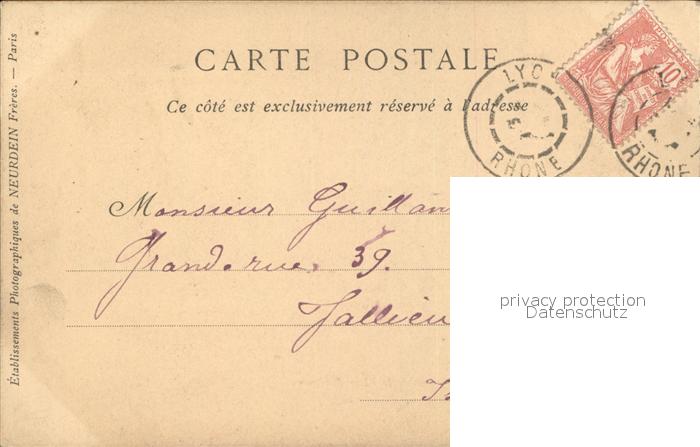 CARTE POSTALE
Ce côté est exclusivement réservé à l'adresse
LYON
RHONE
10
RHONE
Monsieur
Grande rue 39.
Jallieu
privacy protection
Datenschutz
Établissements Photographiques de NEURDEIN Frères. — Paris